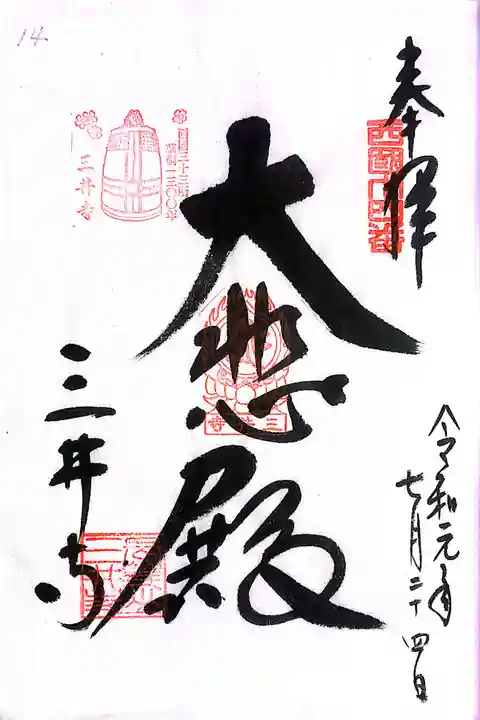 14
奉拝
西国十四番
令和元年
七月二十四日
大悲殿
三井寺
西国三十三所
草創一三〇〇年
三井寺
三井寺